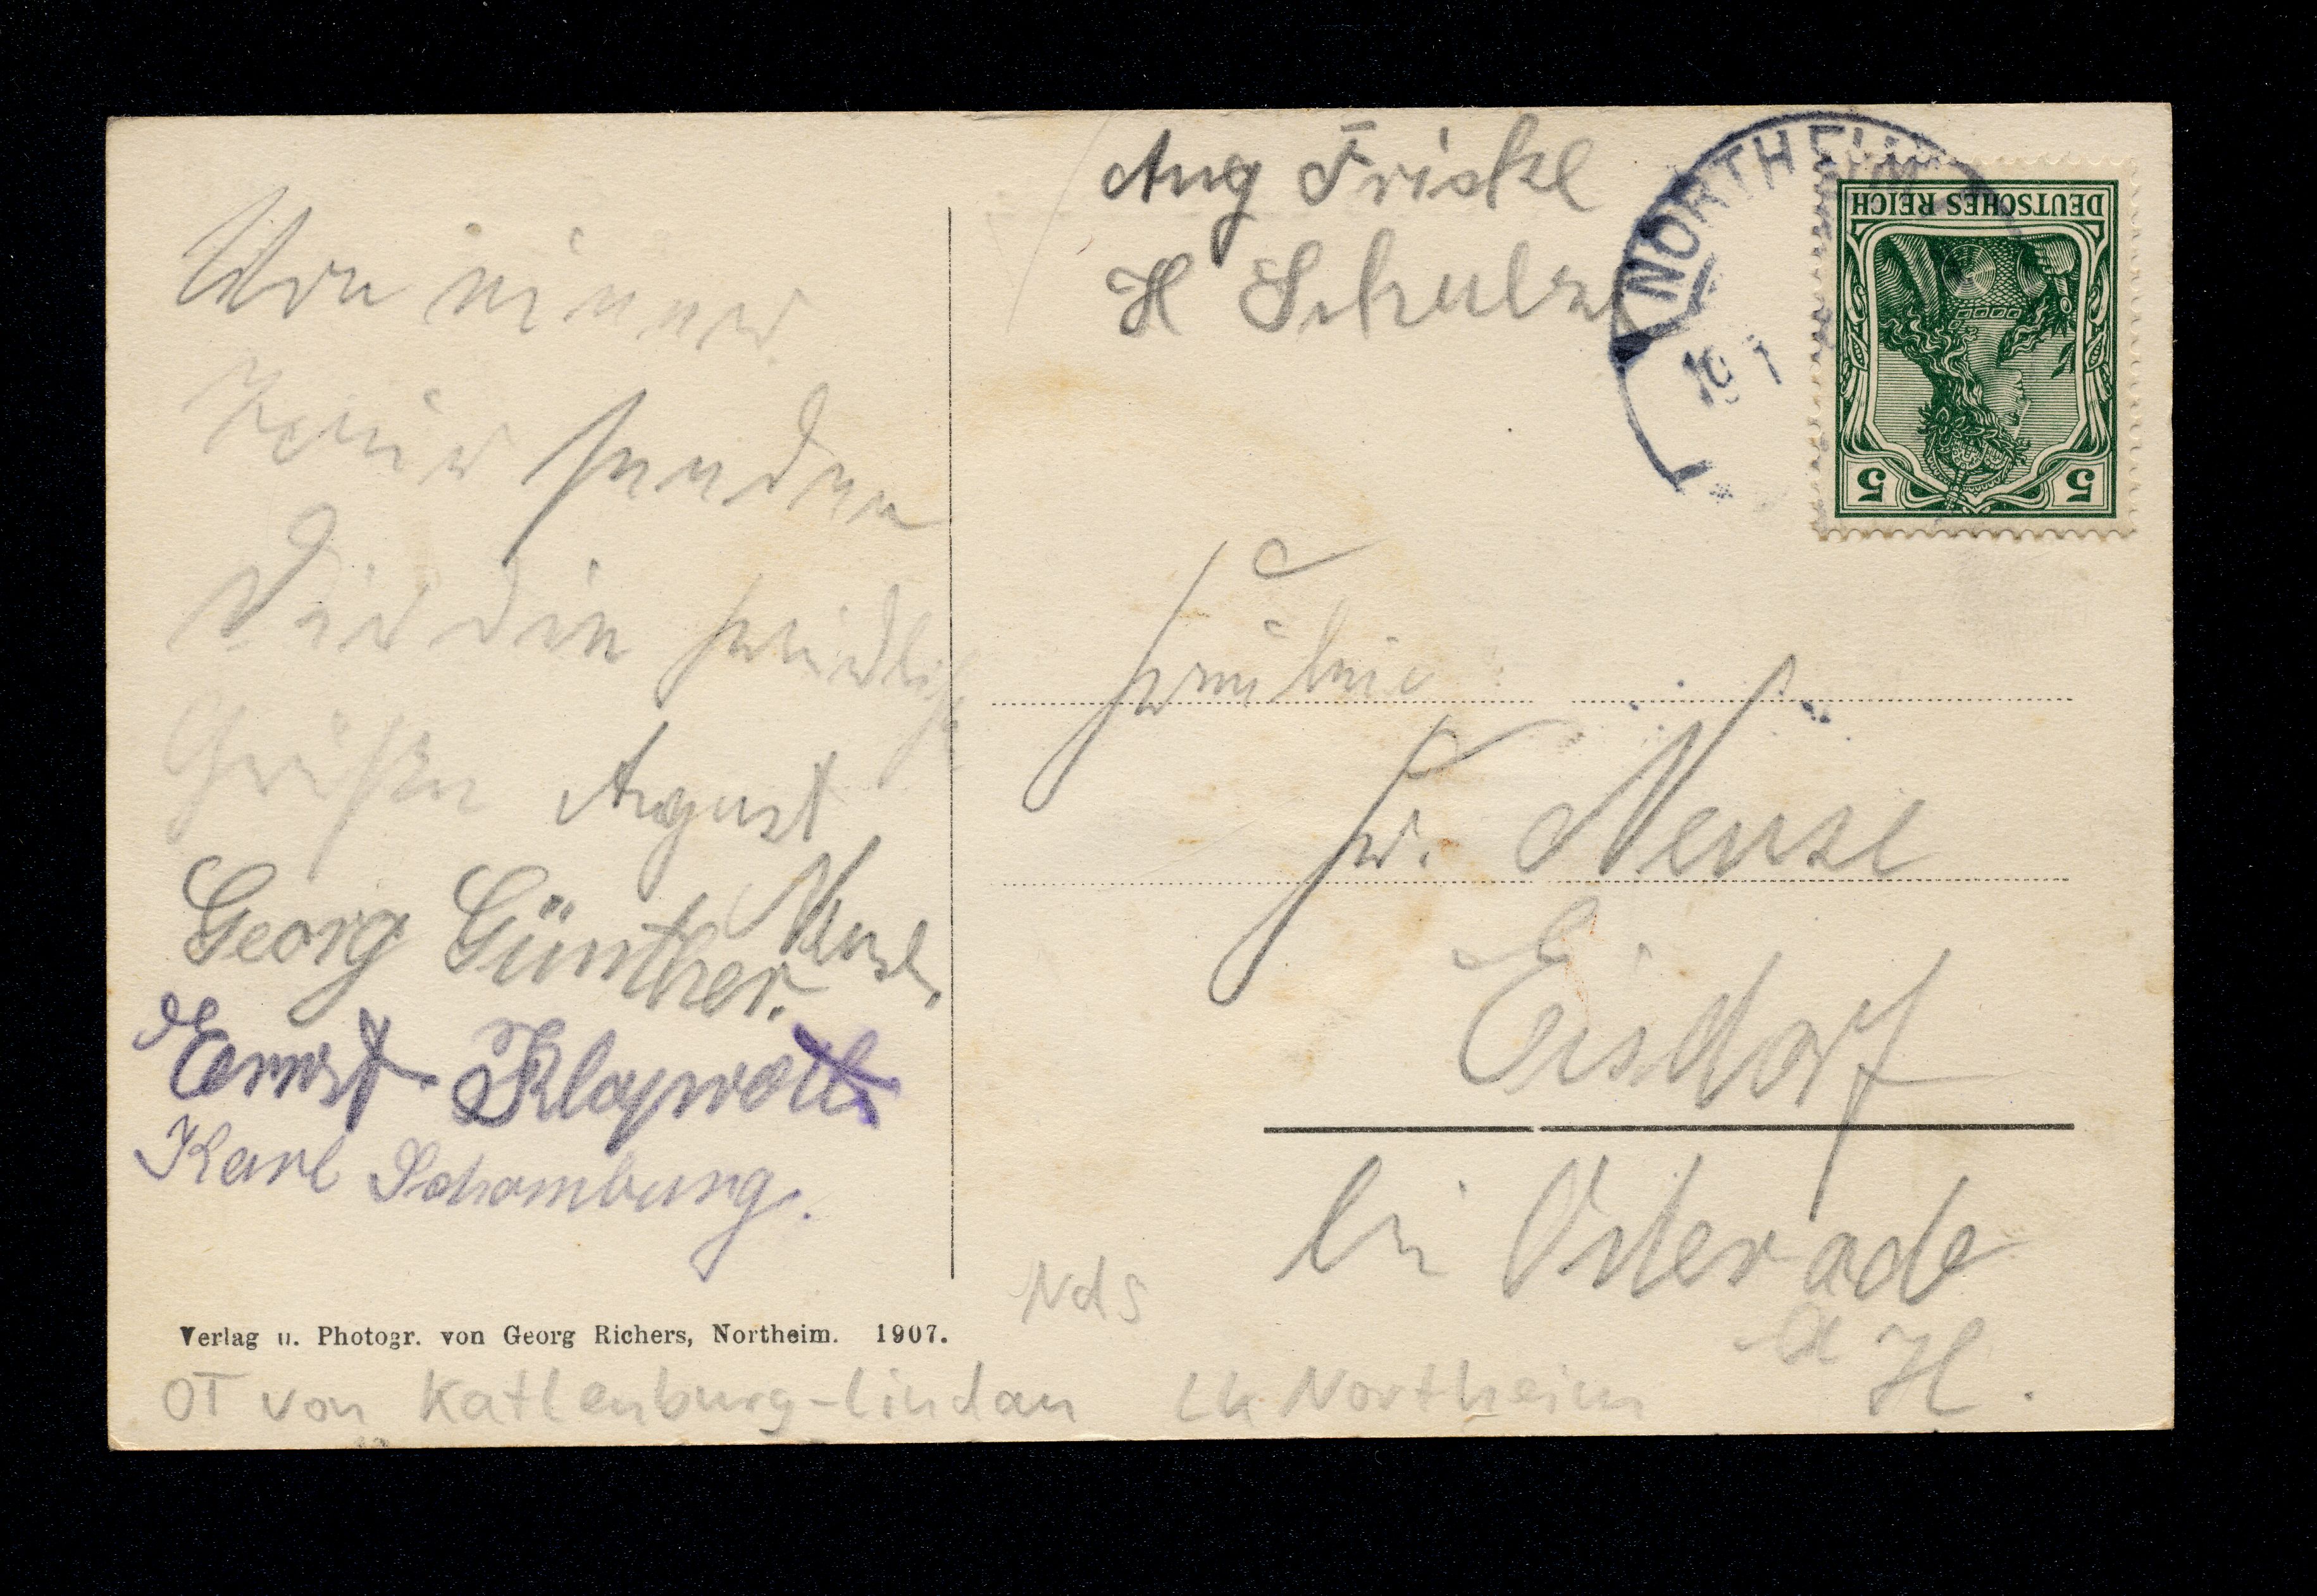 Von einer
Tour senden
Dir die herzlichsten
Grüßen August
Neuse.
Georg Günther.
Ernst Klapproth
Karl Schomburg.
Verlag u. Photogr. von Georg Richers, Northeim. 1907.
OT von Katlenburg-Lindau LK Northeim
Nds
Aug Fricke
H Schulze
NORTHEIM
DEUTSCHES REICH
5 5
Fräulein
Fr. Neuse
Eisdorf
bei Osterode
a H.